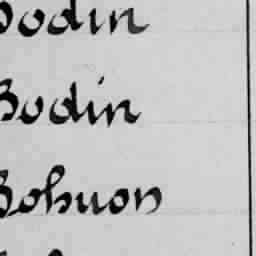 Bodin
Bodin
Bohuon